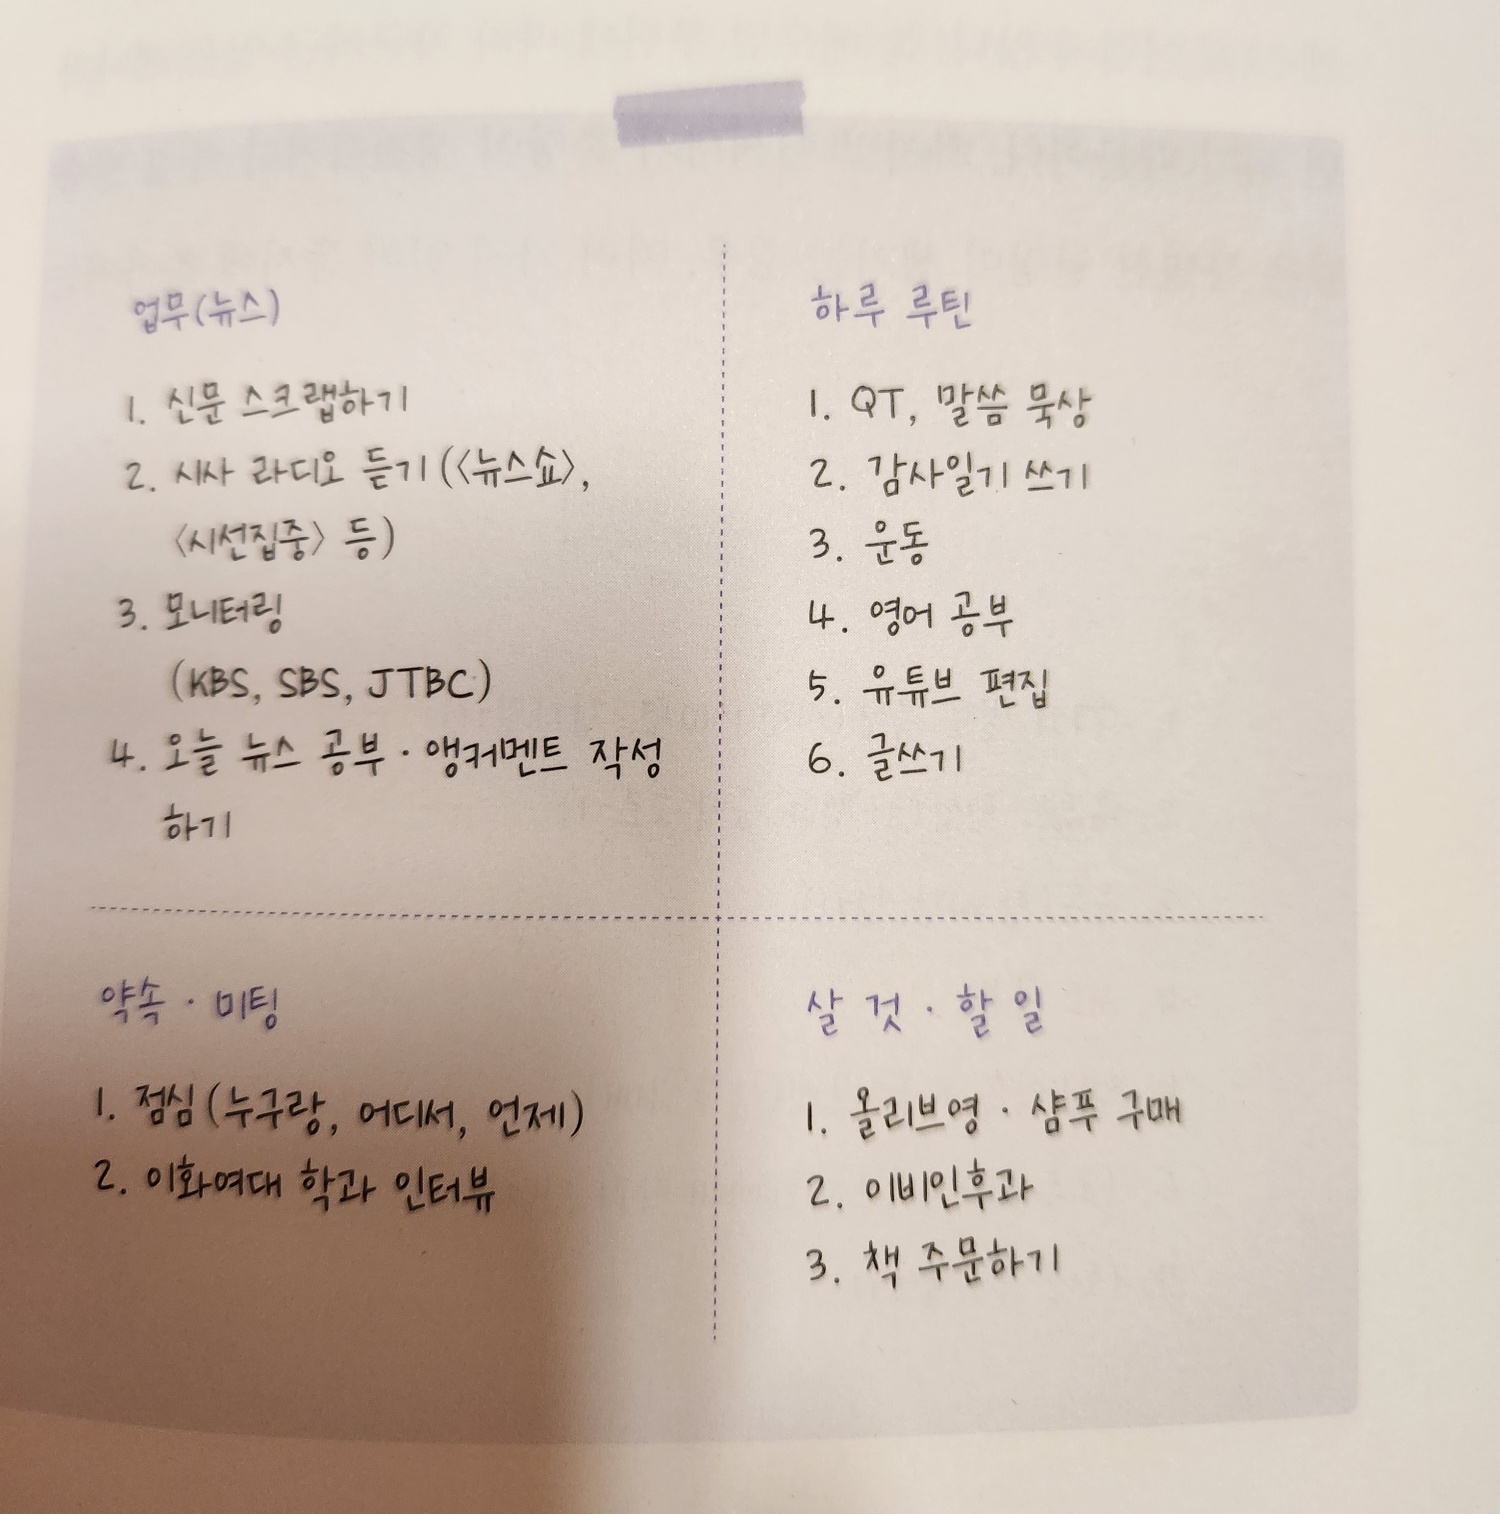 업무(뉴스)
1. 신문 스크랩하기
2. 시사 라디오 듣기(〈뉴스쇼〉,
〈시선집중〉 등)
3. 모니터링
(KBS, SBS, JTBC)
4. 오늘 뉴스 공부 · 앵커멘트 작성
하기
하루 루틴
1. QT, 말씀 묵상
2. 감사일기 쓰기
3. 운동
4. 영어 공부
5. 유튜브 편집
6. 글쓰기
약속 · 미팅
1. 점심(누구랑, 어디서, 언제)
2. 이화여대 학과 인터뷰
살 것 · 할 일
1. 올리브영 · 샴푸 구매
2. 이비인후과
3. 책 주문하기